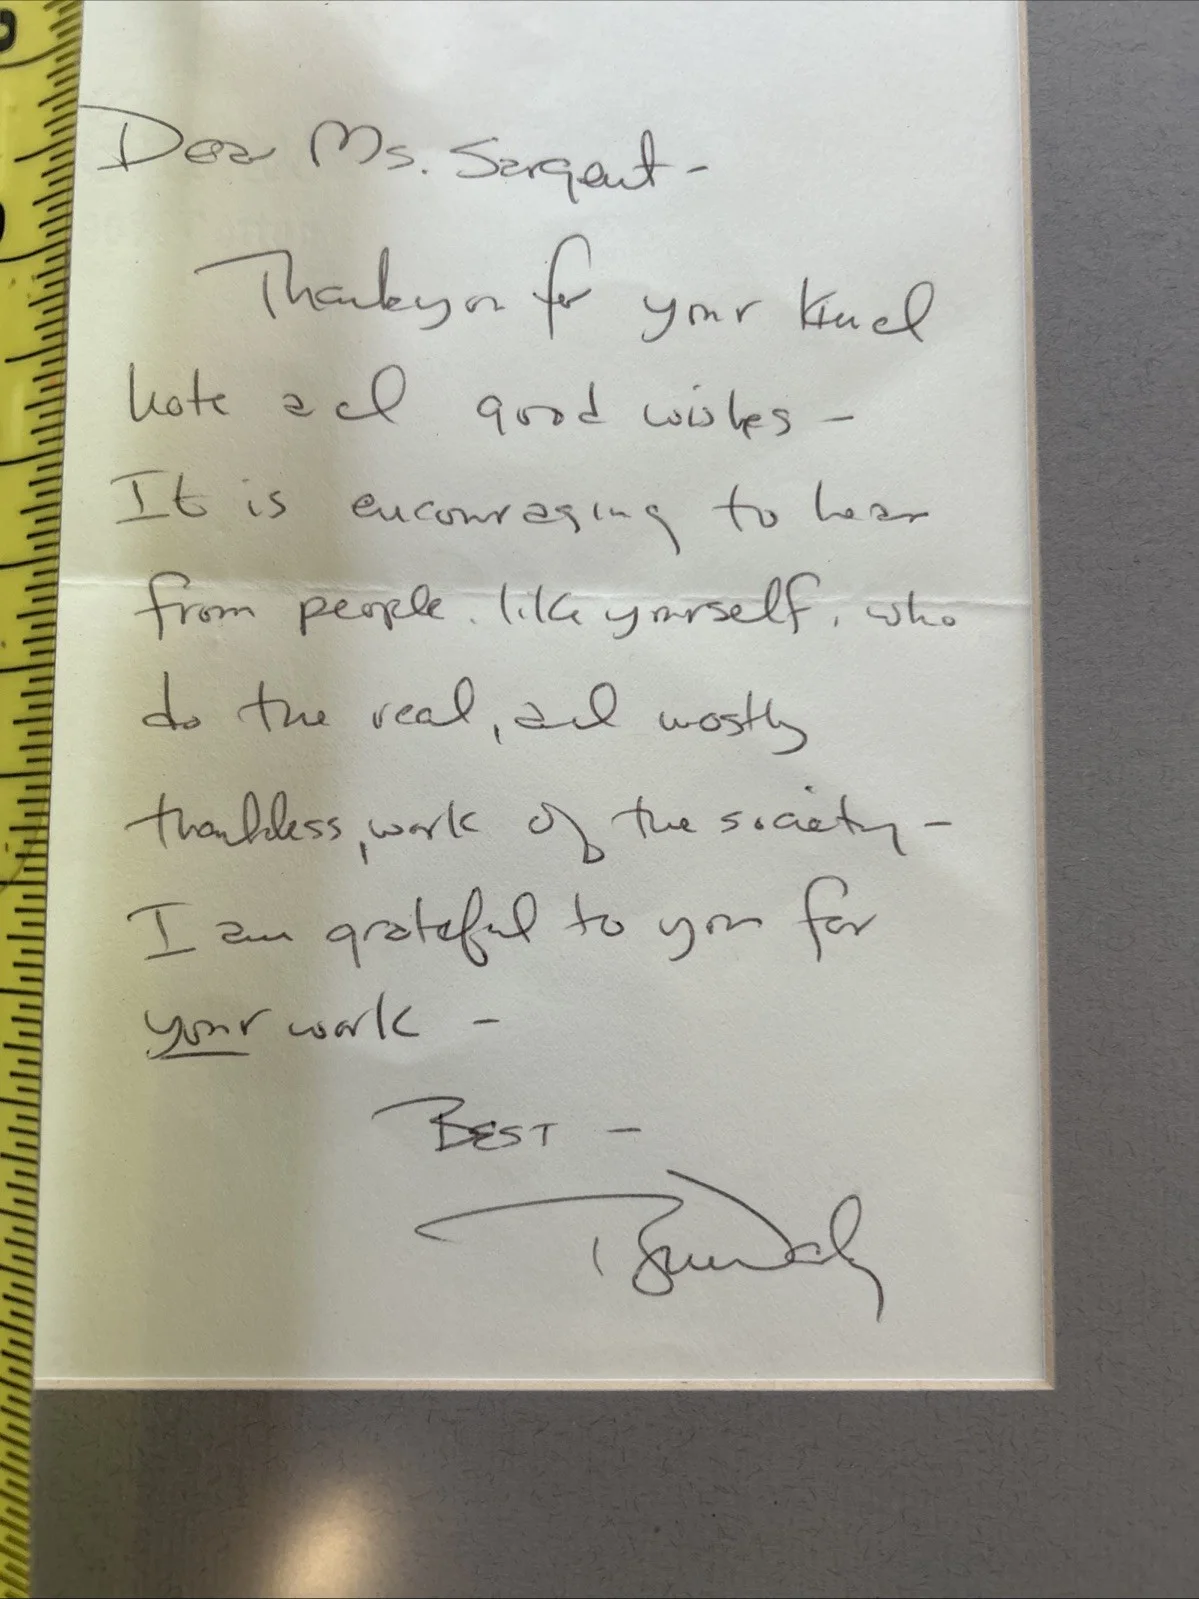 Dear Ms. Sargent -
Thank you for your kind
note and good wishes -
It is encouraging to hear
from people, like yourself, who
do the real, and mostly
thankless, work of the society -
I am grateful to you for
your work -
BEST -